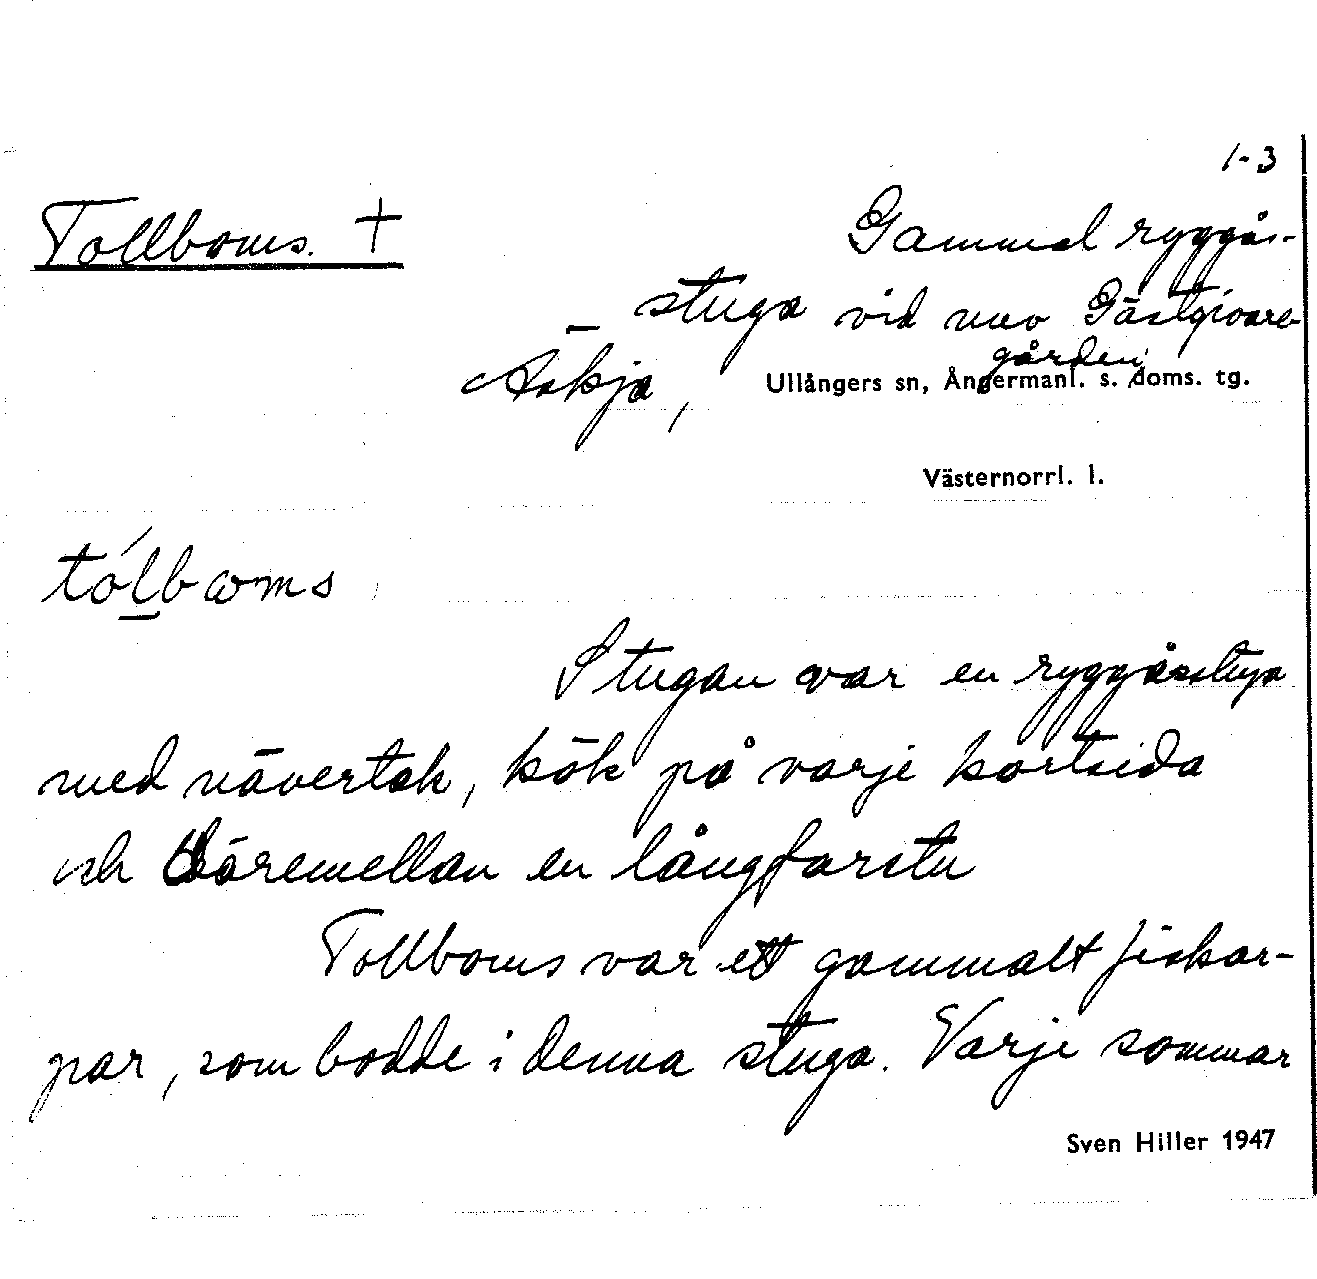 1-3
Tollboms. +
Gammal ryggås-
stuga vid nuv Gästgivare-
gården
Äskja, Ullångers sn, Ångermanl. s. doms. tg.
Västernorrl. l.
tólbωms
Stugan var en ryggåsstuga
med nävertak, kök på varje kortsida
och däremellan en långfarstu
Tollboms var ett gammalt fiskar-
par, som bodde i denna stuga. Varje sommar
Sven Hiller 1947